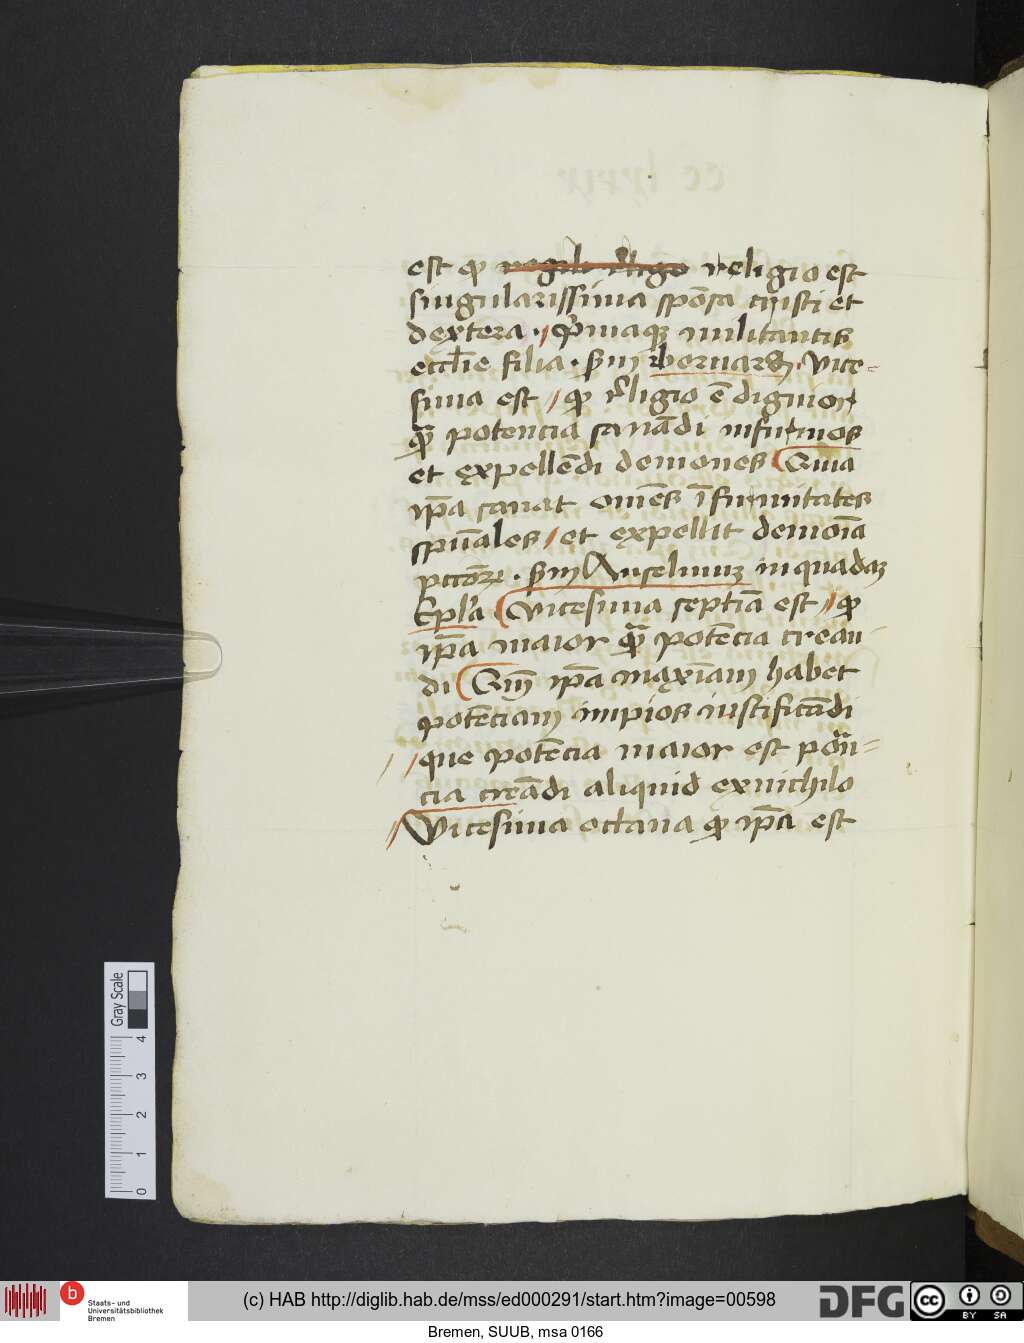 est qꝫ religio est
singularissima spōsa cristi et
dextera · p̄maqꝫ militantis
eccl̄ie filia · Sm̄ bernardū · Vice=
sima est / qꝫ rēligio ē dignior
qm̄ potencia sanādi infirmos
et expellēdi demones Quia
ip̄a sanat om̄es īfirmitates
sp̄uales / et expellit demoīa
pctōꝝ · Sm̄ Anselmuꝫ in quadaꝫ
Epl̄a Vicesima septīa est / qꝫ
ip̄a maior qm̄ potēcia crean-
di Qm̄ ip̄a maxīam habet
potēciam impios iustificādi
que potēcia maior est potēn=
cia creādi aliquid ex nichilo
Vicesima octaua qꝫ ip̄a est
Gray Scale
4
3
2
1
0
b
Staats- und
Universitätsbibliothek
Bremen
(c) HAB http://diglib.hab.de/mss/ed000291/start.htm?image=00598
DFG
cc
BY SA
Bremen, SUUB, msa 0166